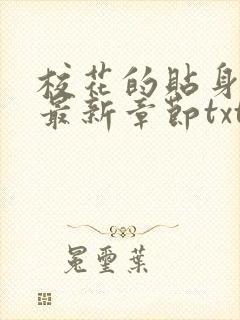 校花的貼身
最新章節txt
冕璽葉